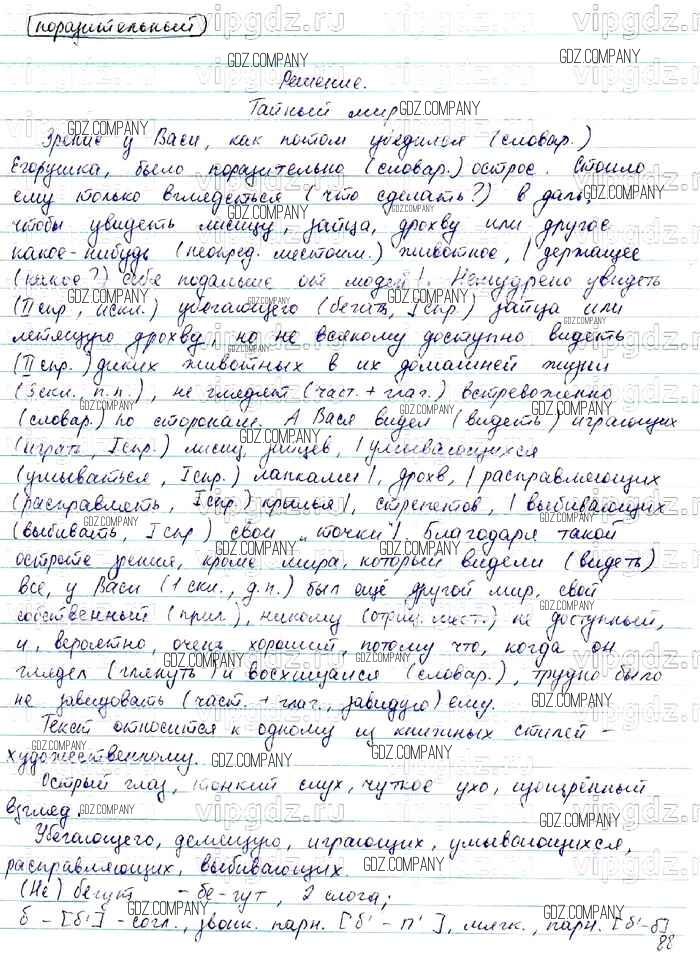 поразительный
Решение.
Тайный мир
Зрение у Васи, как потом убедился (словар.)
Егорушка, было поразительно (словар.) острое. Стоило
ему только вглядеться (что сделать?) в даль,
чтобы увидеть лисицу, зайца, дрохву или другое
какое-нибудь (неопред. местоим.) животное, | держащее
(какое?) себя подальше от людей |. Немудрено увидеть
(II спр., искл.) убегающего (бегать, I спр.) зайца или
летящую дрохву, но не всякому доступно видеть
(II спр.) диких животных в их домашней жизни
(3 скл., п.п.), не глядят (част. + глаг.) встревоженно
(словар.) по сторонам. А Вася видел (видеть) играющих
(играть, I спр.) лисиц, зайцев, | умывающихся
(умываться, I спр.) лапками |, дрохв, | расправляющих
(расправлять, I спр.) крылья |, стрепетов, | выбивающих
(выбивать, I спр) свои „точки" |. Благодаря такой
остроте зрения, кроме мира, который видели (видеть)
все, у Васи (1 скл., д.п.) был ещё другой мир, свой
собственный (прил.), никому (отриц. мест.) не доступный,
и, вероятно, очень хороший, потому что, когда он
глядел (глянуть) и восхищался (словар.), трудно было
не завидовать (част. + глаг., завидую) ему.
Текст относится к одному из книжных стилей –
художественному.
Острый глаз, тонкий слух, чуткое ухо, изощрённый
взгляд.
Убегающего, летящую, играющих, умывающихся,
расправляющих, выбивающих.
(Не) бегут – бе-гут, 2 слога;
б – [б'] – согл., звонк. парн. [б' – п'], мягк., парн. [б'–б]
88
GDZ.COMPANY
vipgdz.ru